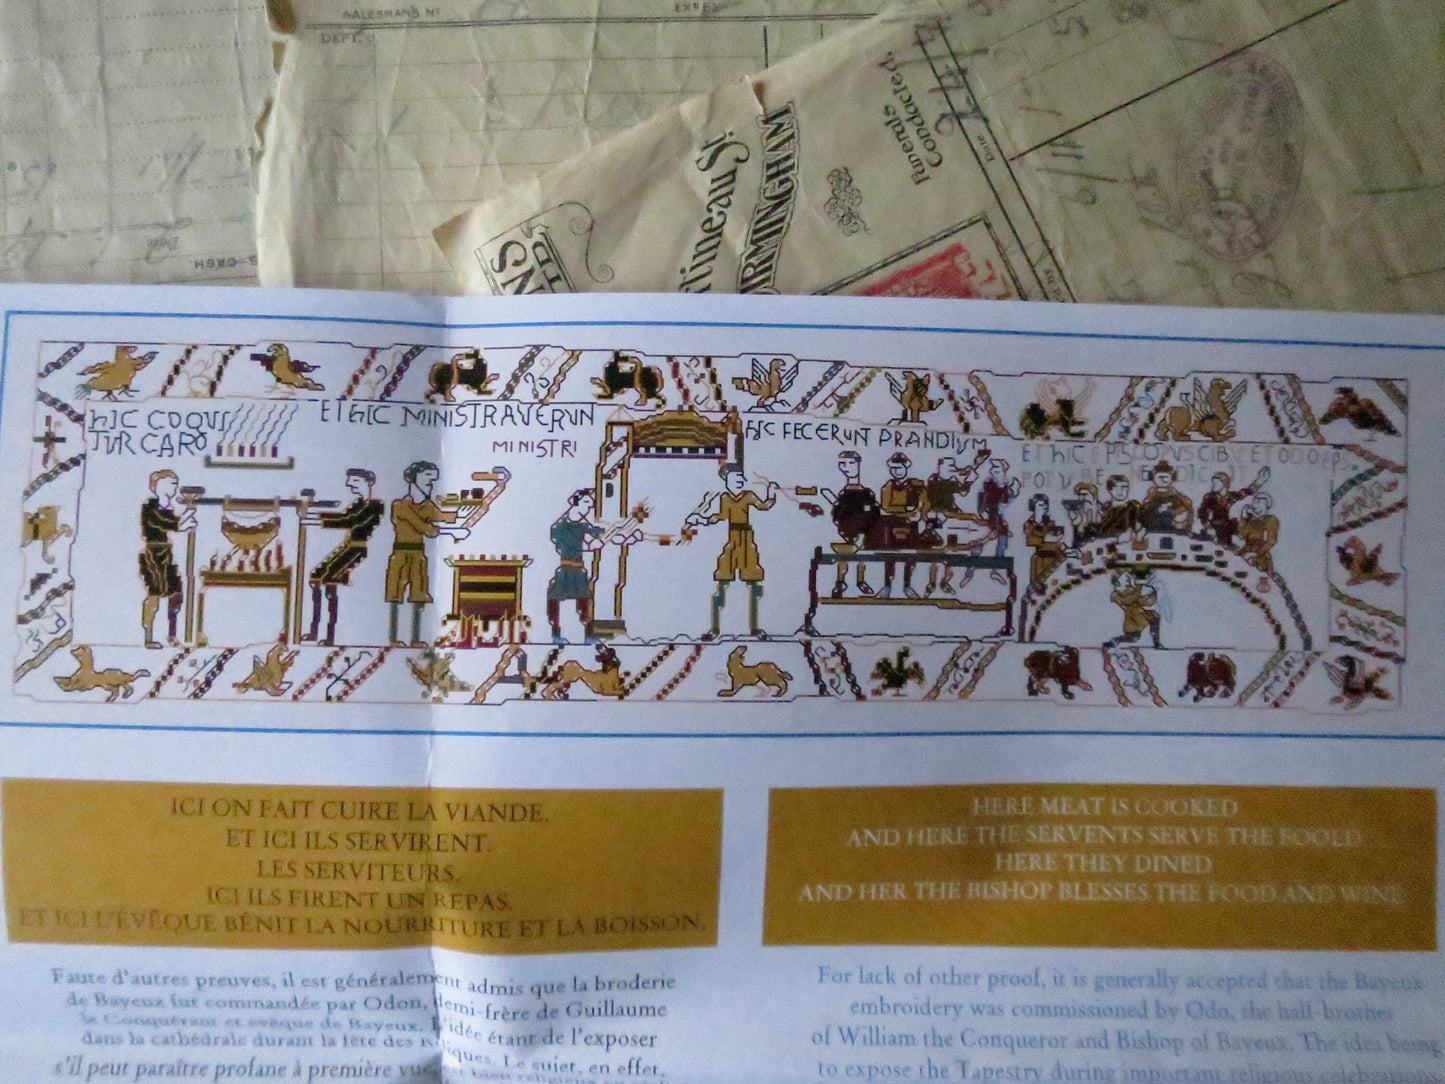 SALESMAN'S Nº
DEPT.
CASH.
Martineau St.
BIRMINGHAM
Funerals
Conducted.
Date
HIC COQUI
TUR CARO
ET HIC MINISTRAVERUN
MINISTRI
HIC FECERUNT PRANDIUM
ET HIC EPISCOPUS CIB ET ODO EPS
POTU BE
ICI ON FAIT CUIRE LA VIANDE,
ET ICI ILS SERVIRENT.
LES SERVITEURS.
ICI ILS FIRENT UN REPAS.
ET ICI L'ÉVÊQUE BÉNIT LA NOURRITURE ET LA BOISSON.
HERE MEAT IS COOKED
AND HERE THE SERVENTS SERVE THE FOOLD
HERE THEY DINED
AND HER THE BISHOP BLESSES THE FOOD AND WINE
Faute d'autres preuves, il est généralement admis que la broderie
de Bayeux fut commandée par Odon, demi-frère de Guillaume
le Conquérant et evêque de Bayeux. L'idée étant de l'exposer
dans la cathédrale durant la fête des reliques. Le sujet, en effet,
s'il peut paraître profane à première vue, est bien religieux
For lack of other proof, it is generally accepted that the Bayeux
embroidery was commissioned by Odo, the half-brother
of William the Conqueror and Bishop of Bayeux. The idea being
to expose the Tapestry during important religious celebrations